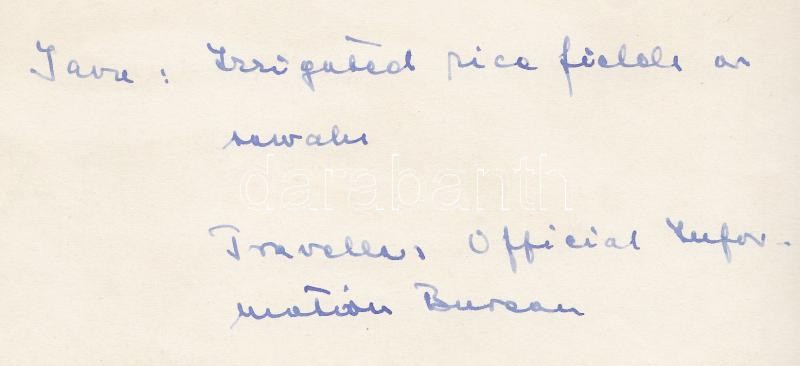 Java: Irrigated rice fields or
sawahs
darabanth
Travellers Official Infor-
mation Bureau